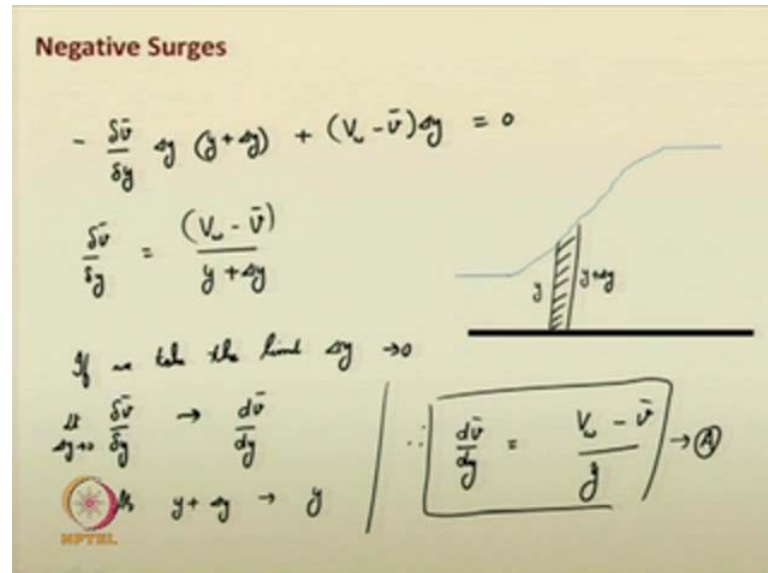 Negative Surges
- δv̄/δy Δy (y+Δy) + (V_w - v̄)Δy = 0
δv̄/δy = (V_w - v̄)/(y + Δy)
y y+Δy
If we take the limit Δy → 0
lt Δy→0 δv̄/δy → dv̄/dy
y + Δy → y
∴ dv̄/dy = (V_w - v̄)/y → Ⓐ
NPTEL